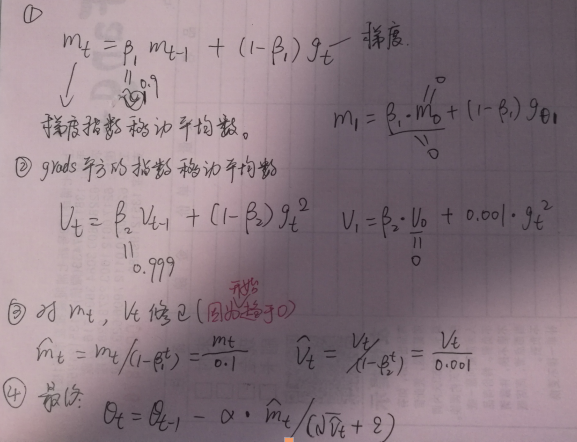 ①
m_t = β_1 m_{t-1} + (1-β_1) g_t — 梯度.
0.9
梯度指数移动平均数。
m_1 = β_1·m_0 + (1-β_1) g_{01}
0
0
② grads平方的指数移动平均数
V_t = β_2 V_{t-1} + (1-β_2) g_t^2   V_1 = β_2·V_0 + 0.001·g_t^2
0.999
0
开始
③ 对 m_t, V_t 修正(因为趋于0)
m̂_t = m_t/(1-β_1^t) = m_t/0.1   V̂_t = V_t/(1-β_2^t) = V_t/0.001
④ 最终
θ_t = θ_{t-1} - α·m̂_t/(√V̂_t + ε)